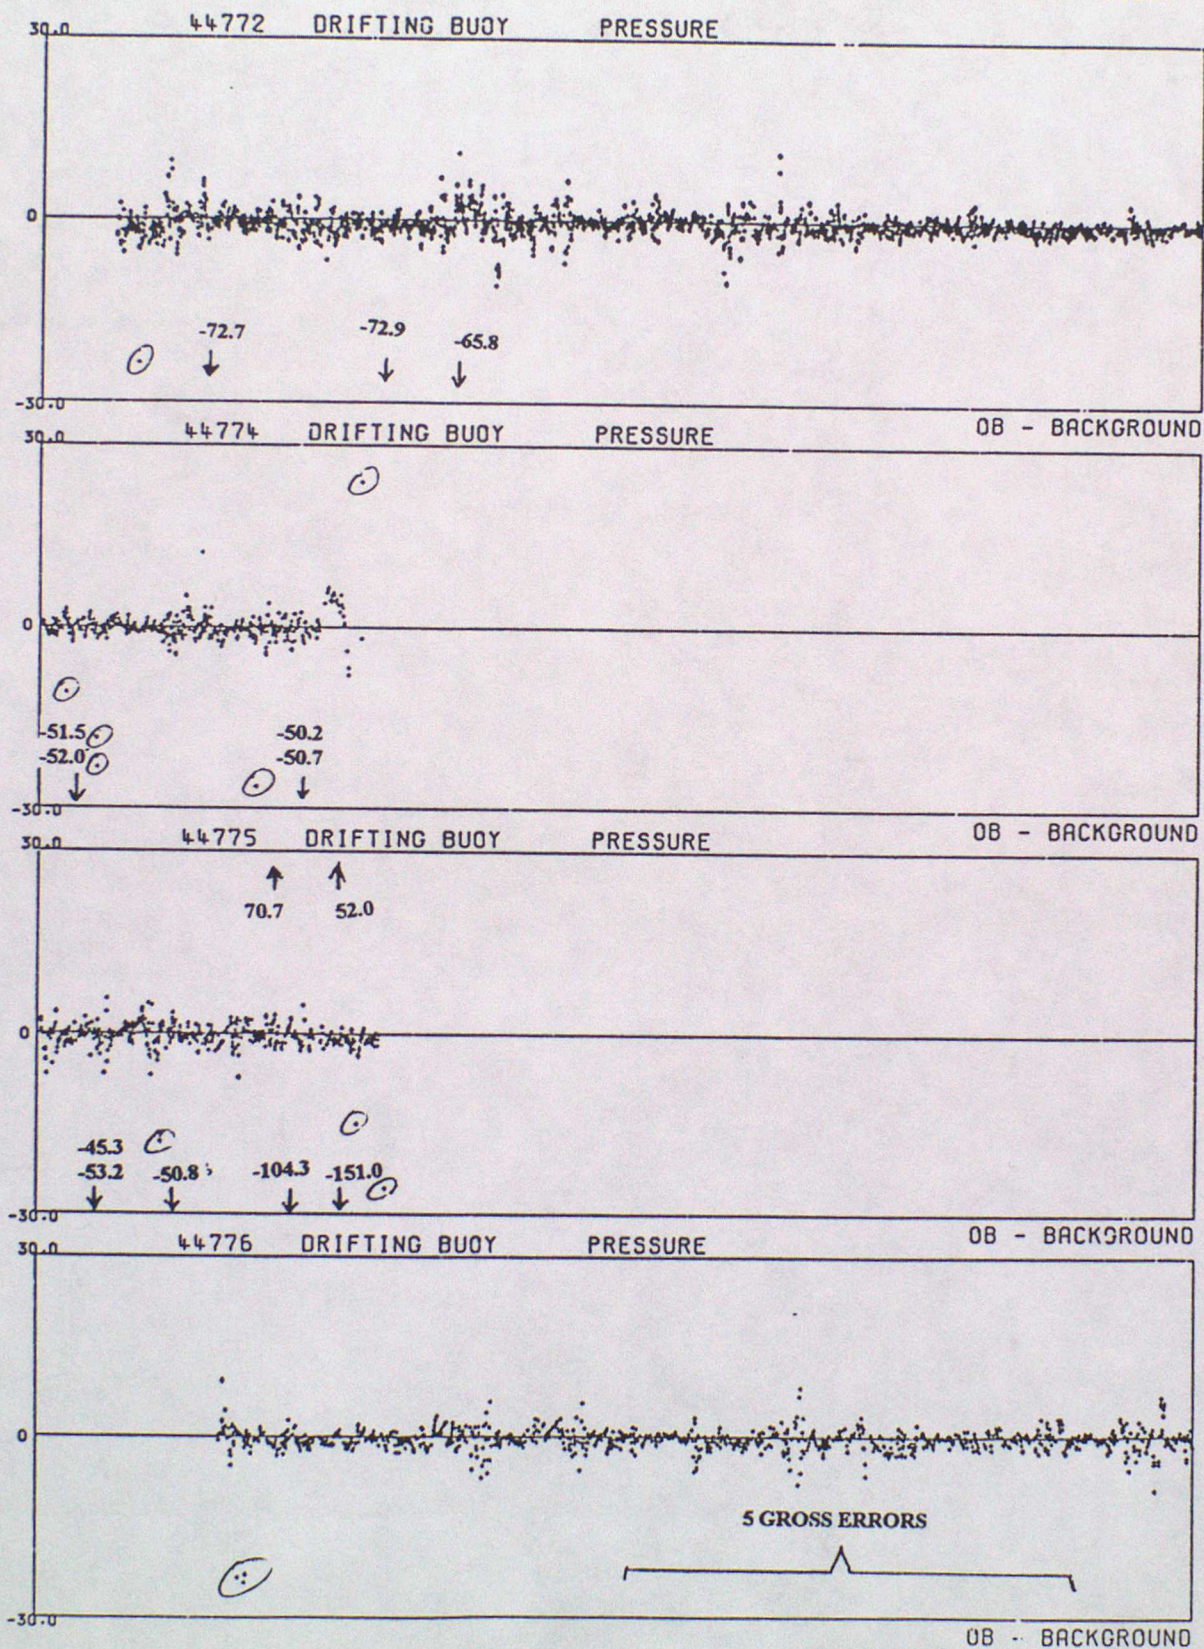 44772 DRIFTING BUOY PRESSURE
30.0
0
-72.7 -72.9 -65.8
-30.0
OB - BACKGROUND
44774 DRIFTING BUOY PRESSURE
30.0
0
-51.5 -50.2
-52.0 -50.7
-30.0
OB - BACKGROUND
44775 DRIFTING BUOY PRESSURE
30.0
70.7 52.0
0
-45.3
-53.2 -50.8 -104.3 -151.0
-30.0
OB - BACKGROUND
44776 DRIFTING BUOY PRESSURE
30.0
0
5 GROSS ERRORS
-30.0
OB - BACKGROUND